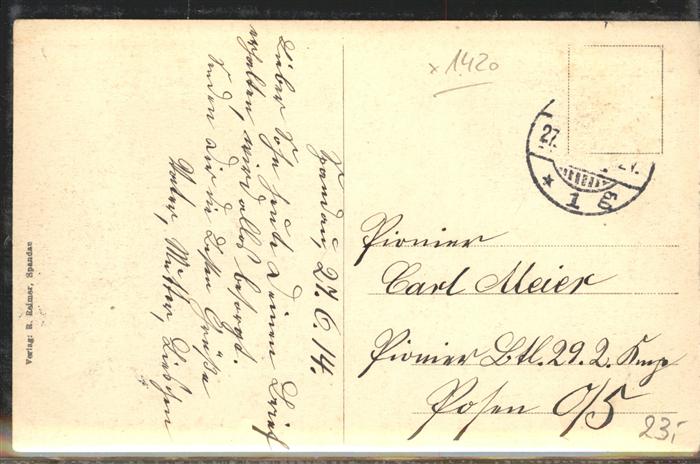 Spandau, 27.6.14.
Lieber Sohn heute Deinen Brief
erhalten, wird alles besorgt.
Senden Dir die besten Grüße
Vater, Mutter, Lieschen
× 1420
27.
* 1 g
Pionier
Carl Meier
Pionier Btl. 29. 2. Kmp
Posen O/5
23,-
Verlag: R. Reimer, Spandau